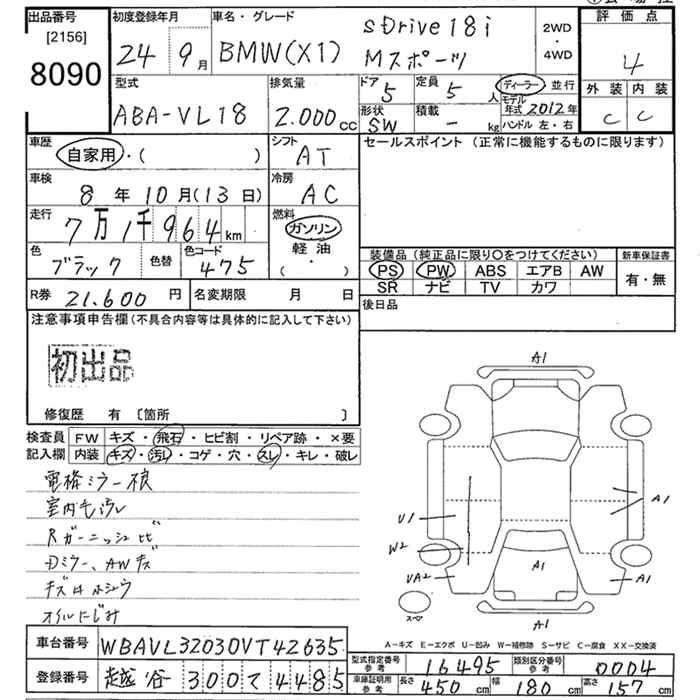 出品番号
[2156]
8090
初度登録年月
24 9月
車名・グレード
BMW(X1)
sDrive 18i
Mスポーツ
2WD
・
4WD
評価点
4
外装 内装
C C
型式
ABA-VL18
排気量
2.000cc
ドア
5
定員
5人
ディーラー 並行
モデル年式 2012年
ハンドル 左・右
形状
SW
積載
- kg
車歴
自家用・( )
シフト
AT
車検
8年10月(13日)
冷房
AC
走行
7万1千964km
燃料
ガソリン
軽油
・( )
色
ブラック
色替
色コード
475
R券 21.600円
名変期限 月 日
セールスポイント (正常に機能するものに限ります)
装備品(純正品に限り○をつけてください)
新車保証書
PS PW ABS エアB AW
SR ナビ TV カワ
有・無
後日品
注意事項申告欄(不具合内容等は具体的に記入して下さい)
初出品
修復歴 有 〔箇所 〕
検査員
記入欄
FW キズ・飛石・ヒビ割・リペア跡・×要
内装 キズ・汚レ・コゲ・穴・スレ・キレ・破レ
電格ミラー不良
室内毛汚レ
Rガーニッシュヒビ
Dミラー、AWキズ
オイルにじみ
A1
U1
W2
UA2
A1
A1
A1
A1
A1
スペ
A-キズ E-エクボ U-凹み W-補修跡 S-サビ C-腐食 XX-交換済
車台番号 WBAVL32030VT42635
登録番号 越谷 300て4485
型式指定番号
参考
16495
類別区分番号
参考
0004
車庫証明用
参考
長さ 450cm 幅 180cm 高さ 157cm